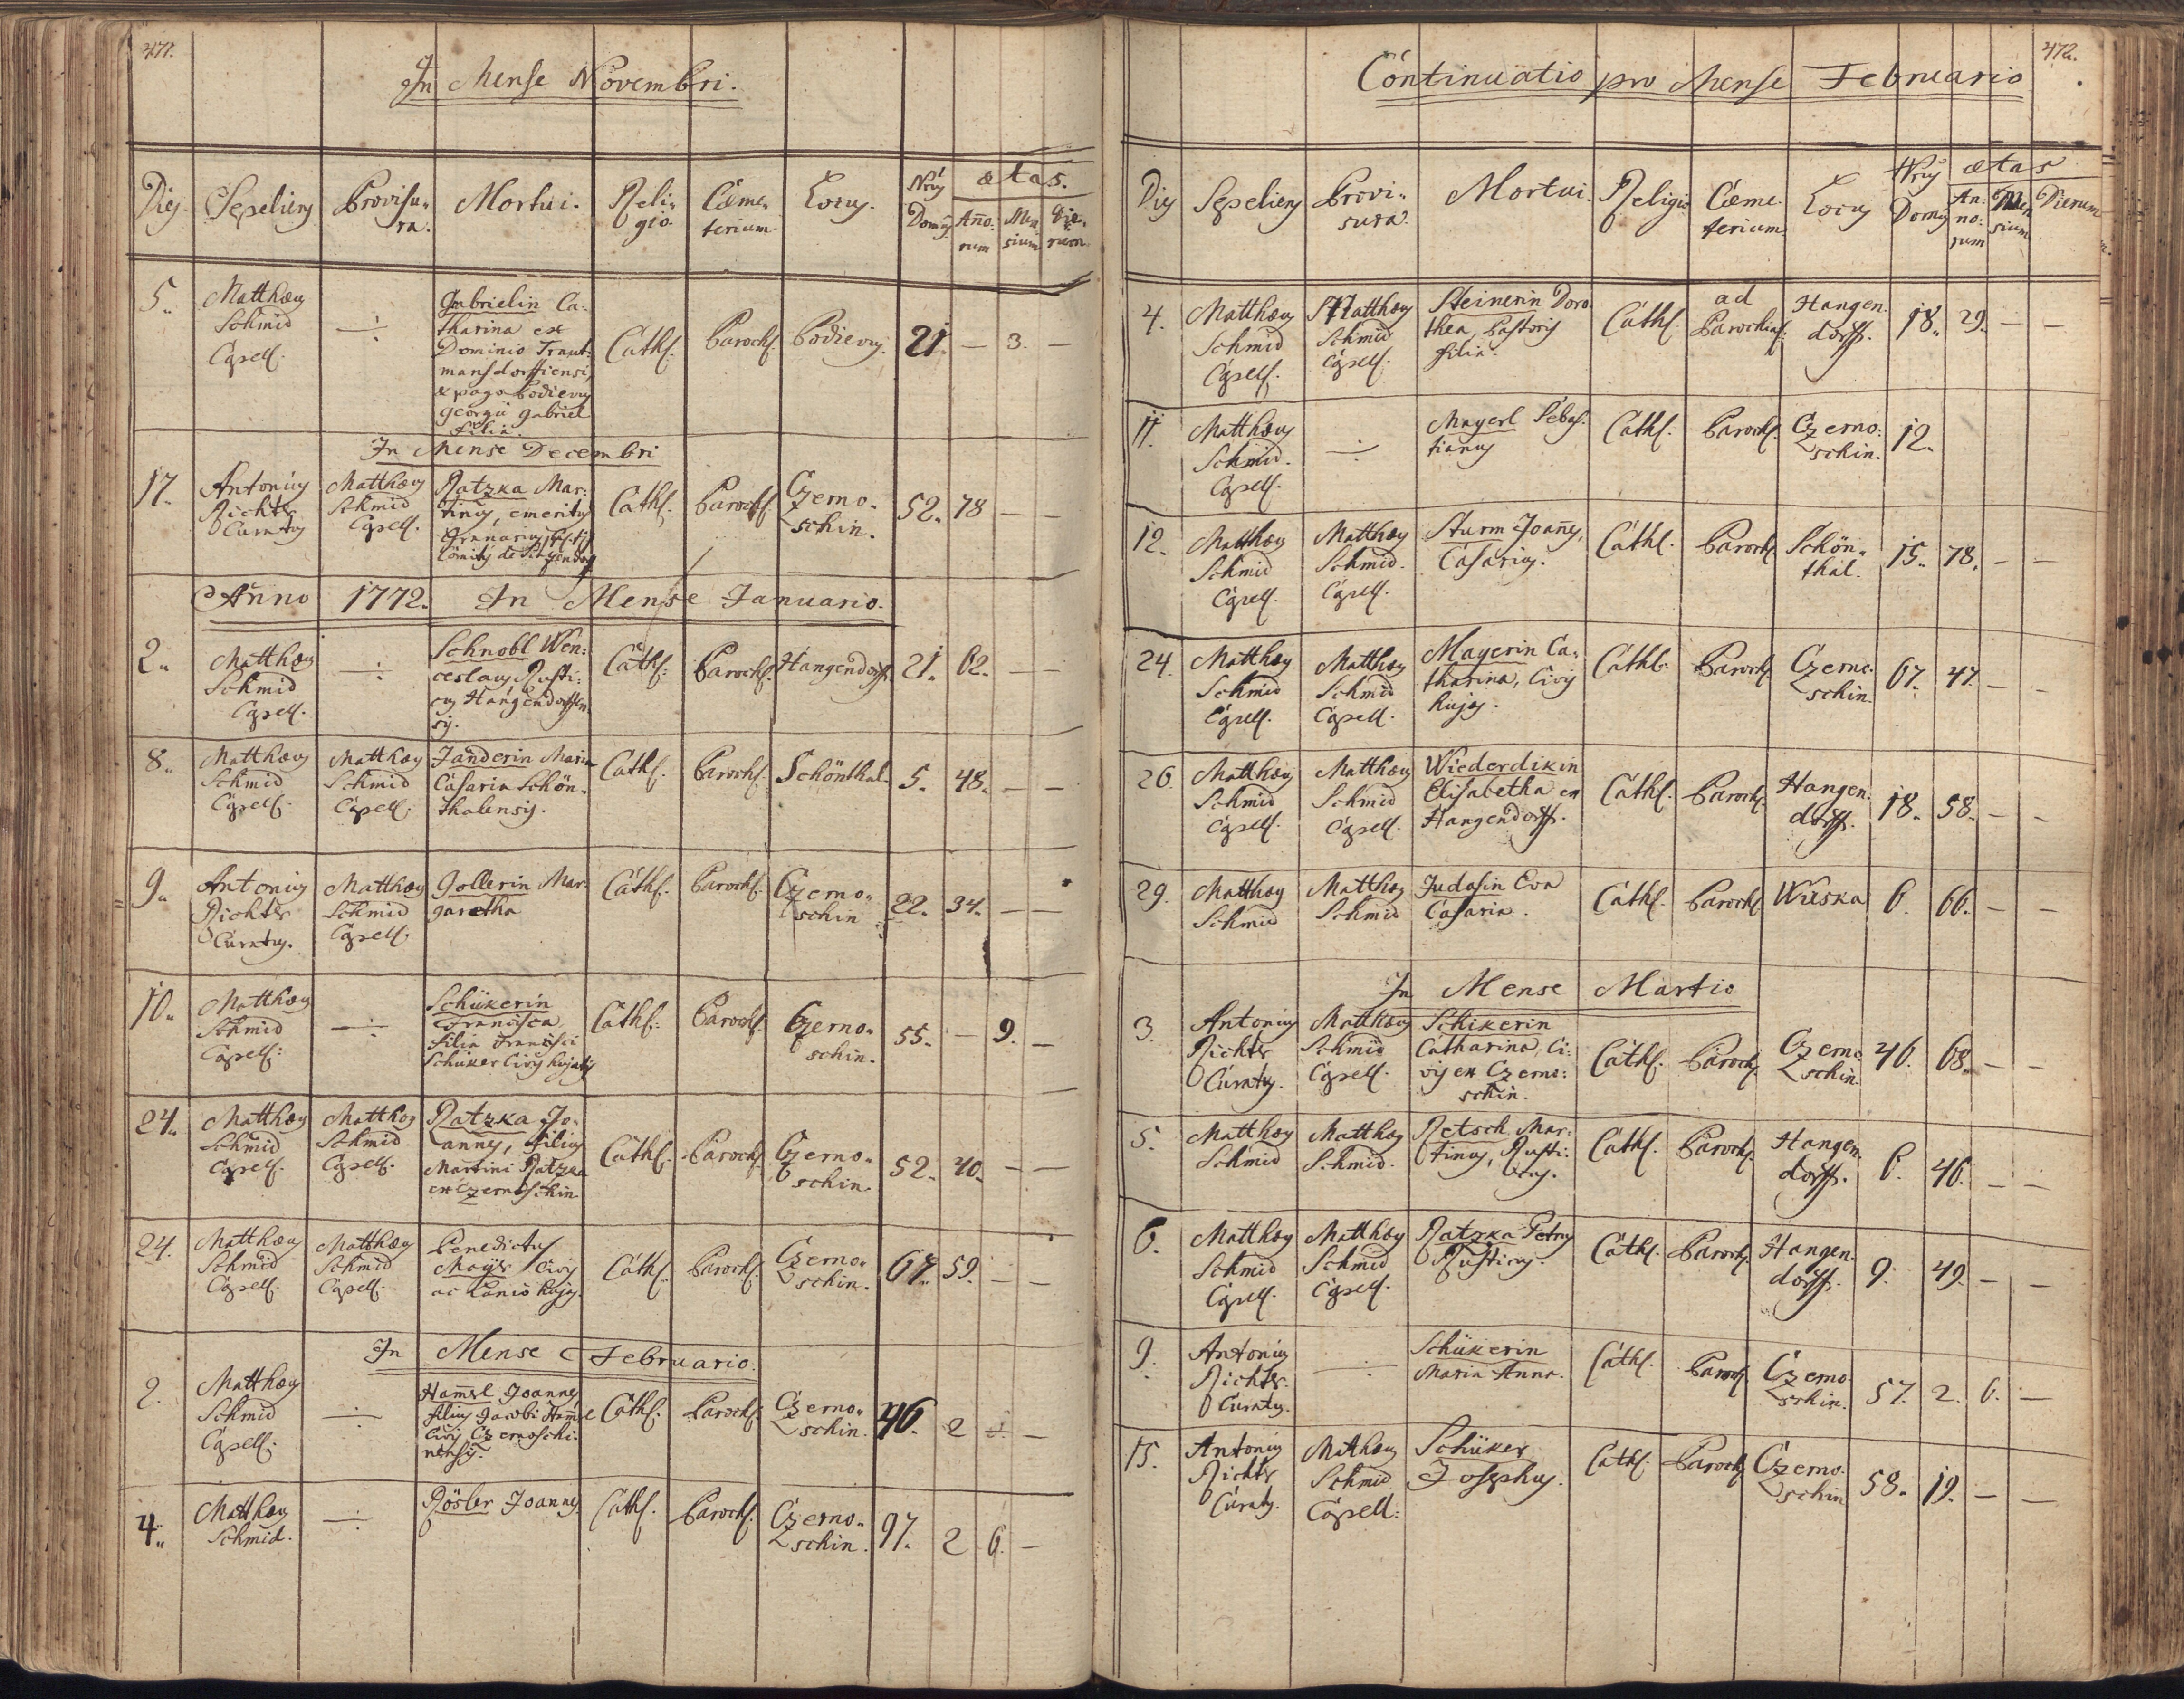 471.
In Mense Novembri.
Dies. Sepeliens Provisu- ra. Mortui. Reli- gio. Cæme- terium. Locus. Nrus Domus ætas. Año- rum Men- sium Die- rum.
5. Matthæus Schmid Capell. Gabrielin Ca-
tharina ex
Dominio Traut-
mansdorffiensi,
& pago Podievus
Georgii Gabriel
filia. Cath. Paroch. Podievus. 21. — 3. —
In Mense Decembri
17. Antonius Richter Curatus Matthæus Schmid Capell. Ratzka Mar-
tinus, emeritus
Granarius
Comitis de Cath. Paroch. Czerno- schin. 52. 78 — —
Año 1772. In Mense Januario.
2. Matthæus Schmid Capell. Schnobl Wen-
ceslaus Rusti-
cus Hangendorffen-
sis. Cath. Paroch. Hangendorff. 21. 62. — —
8. Matthæus Schmid Capell. Matthæus Schmid Capell. Janderin Maria
Casaria Schön-
thalensis. Cath. Paroch. Schönthal. 5. 48. — —
9. Antonius Richter Curatus. Matthæus Schmid Capell. Gollerin Mar-
garetha Cath. Paroch. Czerno- schin 22. 34. — —
10. Matthæus Schmid Capell. Schükerin
Francisca
filia Francisci
Schüker Civis hujatis Cath. Paroch. Czerno- schin. 55. — 9. —
24. Matthæus Schmid Capell. Matthæus Schmid Capell. Ratzka Jo-
annes, filius
Martini Ratzka
ex Czernoschin Cath. Paroch. Czerno- schin. 52. 40. — —
24. Matthæus Schmid Capell. Matthæus Schmid Capell. Benedictus
Mayer Civis
ac Lanio hujas. Cath. Paroch. Czerno- schin. 67. 59. — —
In Mense Februario.
2. Matthæus Schmid Capell. Ham̃erl Joannes
filius Jacobi
Civis Czernoschi-
nensis. Cath. Paroch. Czerno- schin. 46. 2 —
4. Matthæus Schmid. Rösler Joannes Cath. Paroch. Czerno- schin. 97. 2 6. —
472.
Continuatio pro Mense Februario
Dies Sepeliens Provi- sura. Mortui. Religio Cæme- terium. Locus Nrus Domus ætas An- no- rum Men sium Dierum
4. Matthæus Schmid Capell. Matthæus Schmid Capell. Steinerin Doro-
thea, Pastoris
filia. Cath. ad Parochial. Hangen- dorff. 18. 29. — —
11. Matthæus Schmid. Capell. Mayerl Sebas-
tianus Cath. Paroch. Czerno- schin. 12.
12. Matthæus Schmid Capell. Matthæus Schmid. Capell. Sturm Joañes,
Casarius. Cath. Paroch. Schön- thal. 15. 78. — —
24. Matthæus Schmid Capell. Matthæus Schmid Capell. Mayerin Ca-
tharina, Civis
hujas. Cath. Paroch. Czerno- schin. 67. 47. — —
26. Matthæus Schmid Capell. Matthæus Schmid Capell. Wiederdikin
Elisabetha ex
Hangendorff. Cath. Paroch. Hangen- dorff. 18. 58. — —
29. Matthæus Schmid Matthæus Schmid Judasin Eva
Casaria. Cath. Paroch. Wieska 6. 66. — —
In Mense Martio
3. Antonius Richter Curatus. Matthæus Schmid Capell. Schikerin
Catharina, Ci-
vis ex Czerno-
schin. Cath. Paroch. Czerno- schin. 46. 68. — —
5. Matthæus Schmid Matthæus Schmid. Retsch Mar-
tinus, Rusti-
cus. Cath. Paroch. Hangen- dorff. 6. 46. — —
6. Matthæus Schmid Capell. Matthæus Schmid Capell. Ratzka Petrus
Rusticus. Cath. Paroch. Hangen- dorff. 9. 49. — —
9. Antonius Richter. Curatus. Schükerin
Maria Anna. Cath. Paroch. Czerno- schin. 57. 2. 6. —
15. Antonius Richter Curatus. Matthæus Schmid Capell. Schüker
Josephus. Cath. Paroch. Czerno- schin 58. 19. — —